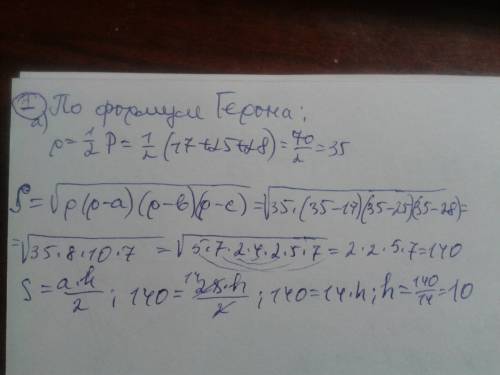 1 По формуле Герона;
а) p = 1/2 P = 1/2 (17+25+28) = 70/2 = 35
S = √p(p-a)(p-b)(p-c) = √35·(35-17)(35-25)(35-28) =
= √35·8·10·7 = √5·7·2·4·2·5·7 = 2·2·5·7=140
S = a·h/2 ; 140 = 14 28·h/2 ; 140=14·h ; h = 140/14 = 10